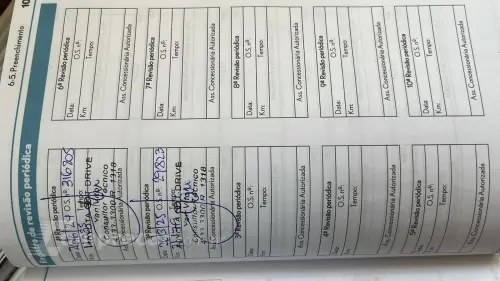 6-5. Preenchimento
Registro de revisão periódica
1ª Revisão periódica
O.S. nº: 316205
Km:
Tempo:
DRIVE
Consultor Técnico
Ass. Concessionária Autorizada
2ª Revisão periódica
O.S. nº:
Km:
Tempo:
DRIVE
Ass. Concessionária Autorizada
3ª Revisão periódica
Data:
O.S. nº:
Km:
Tempo:
Ass. Concessionária Autorizada
4ª Revisão periódica
Data:
O.S. nº:
Km:
Tempo:
Ass. Concessionária Autorizada
5ª Revisão periódica
Data:
O.S. nº:
Km:
Tempo:
Ass. Concessionária Autorizada
6ª Revisão periódica
Data:
O.S. nº:
Km:
Tempo:
Ass. Concessionária Autorizada
7ª Revisão periódica
Data:
O.S. nº:
Km:
Tempo:
Ass. Concessionária Autorizada
8ª Revisão periódica
Data:
O.S. nº:
Km:
Tempo:
Ass. Concessionária Autorizada
9ª Revisão periódica
Data:
O.S. nº:
Km:
Tempo:
Ass. Concessionária Autorizada
10ª Revisão periódica
Data:
O.S. nº:
Km:
Tempo:
Ass. Concessionária Autorizada